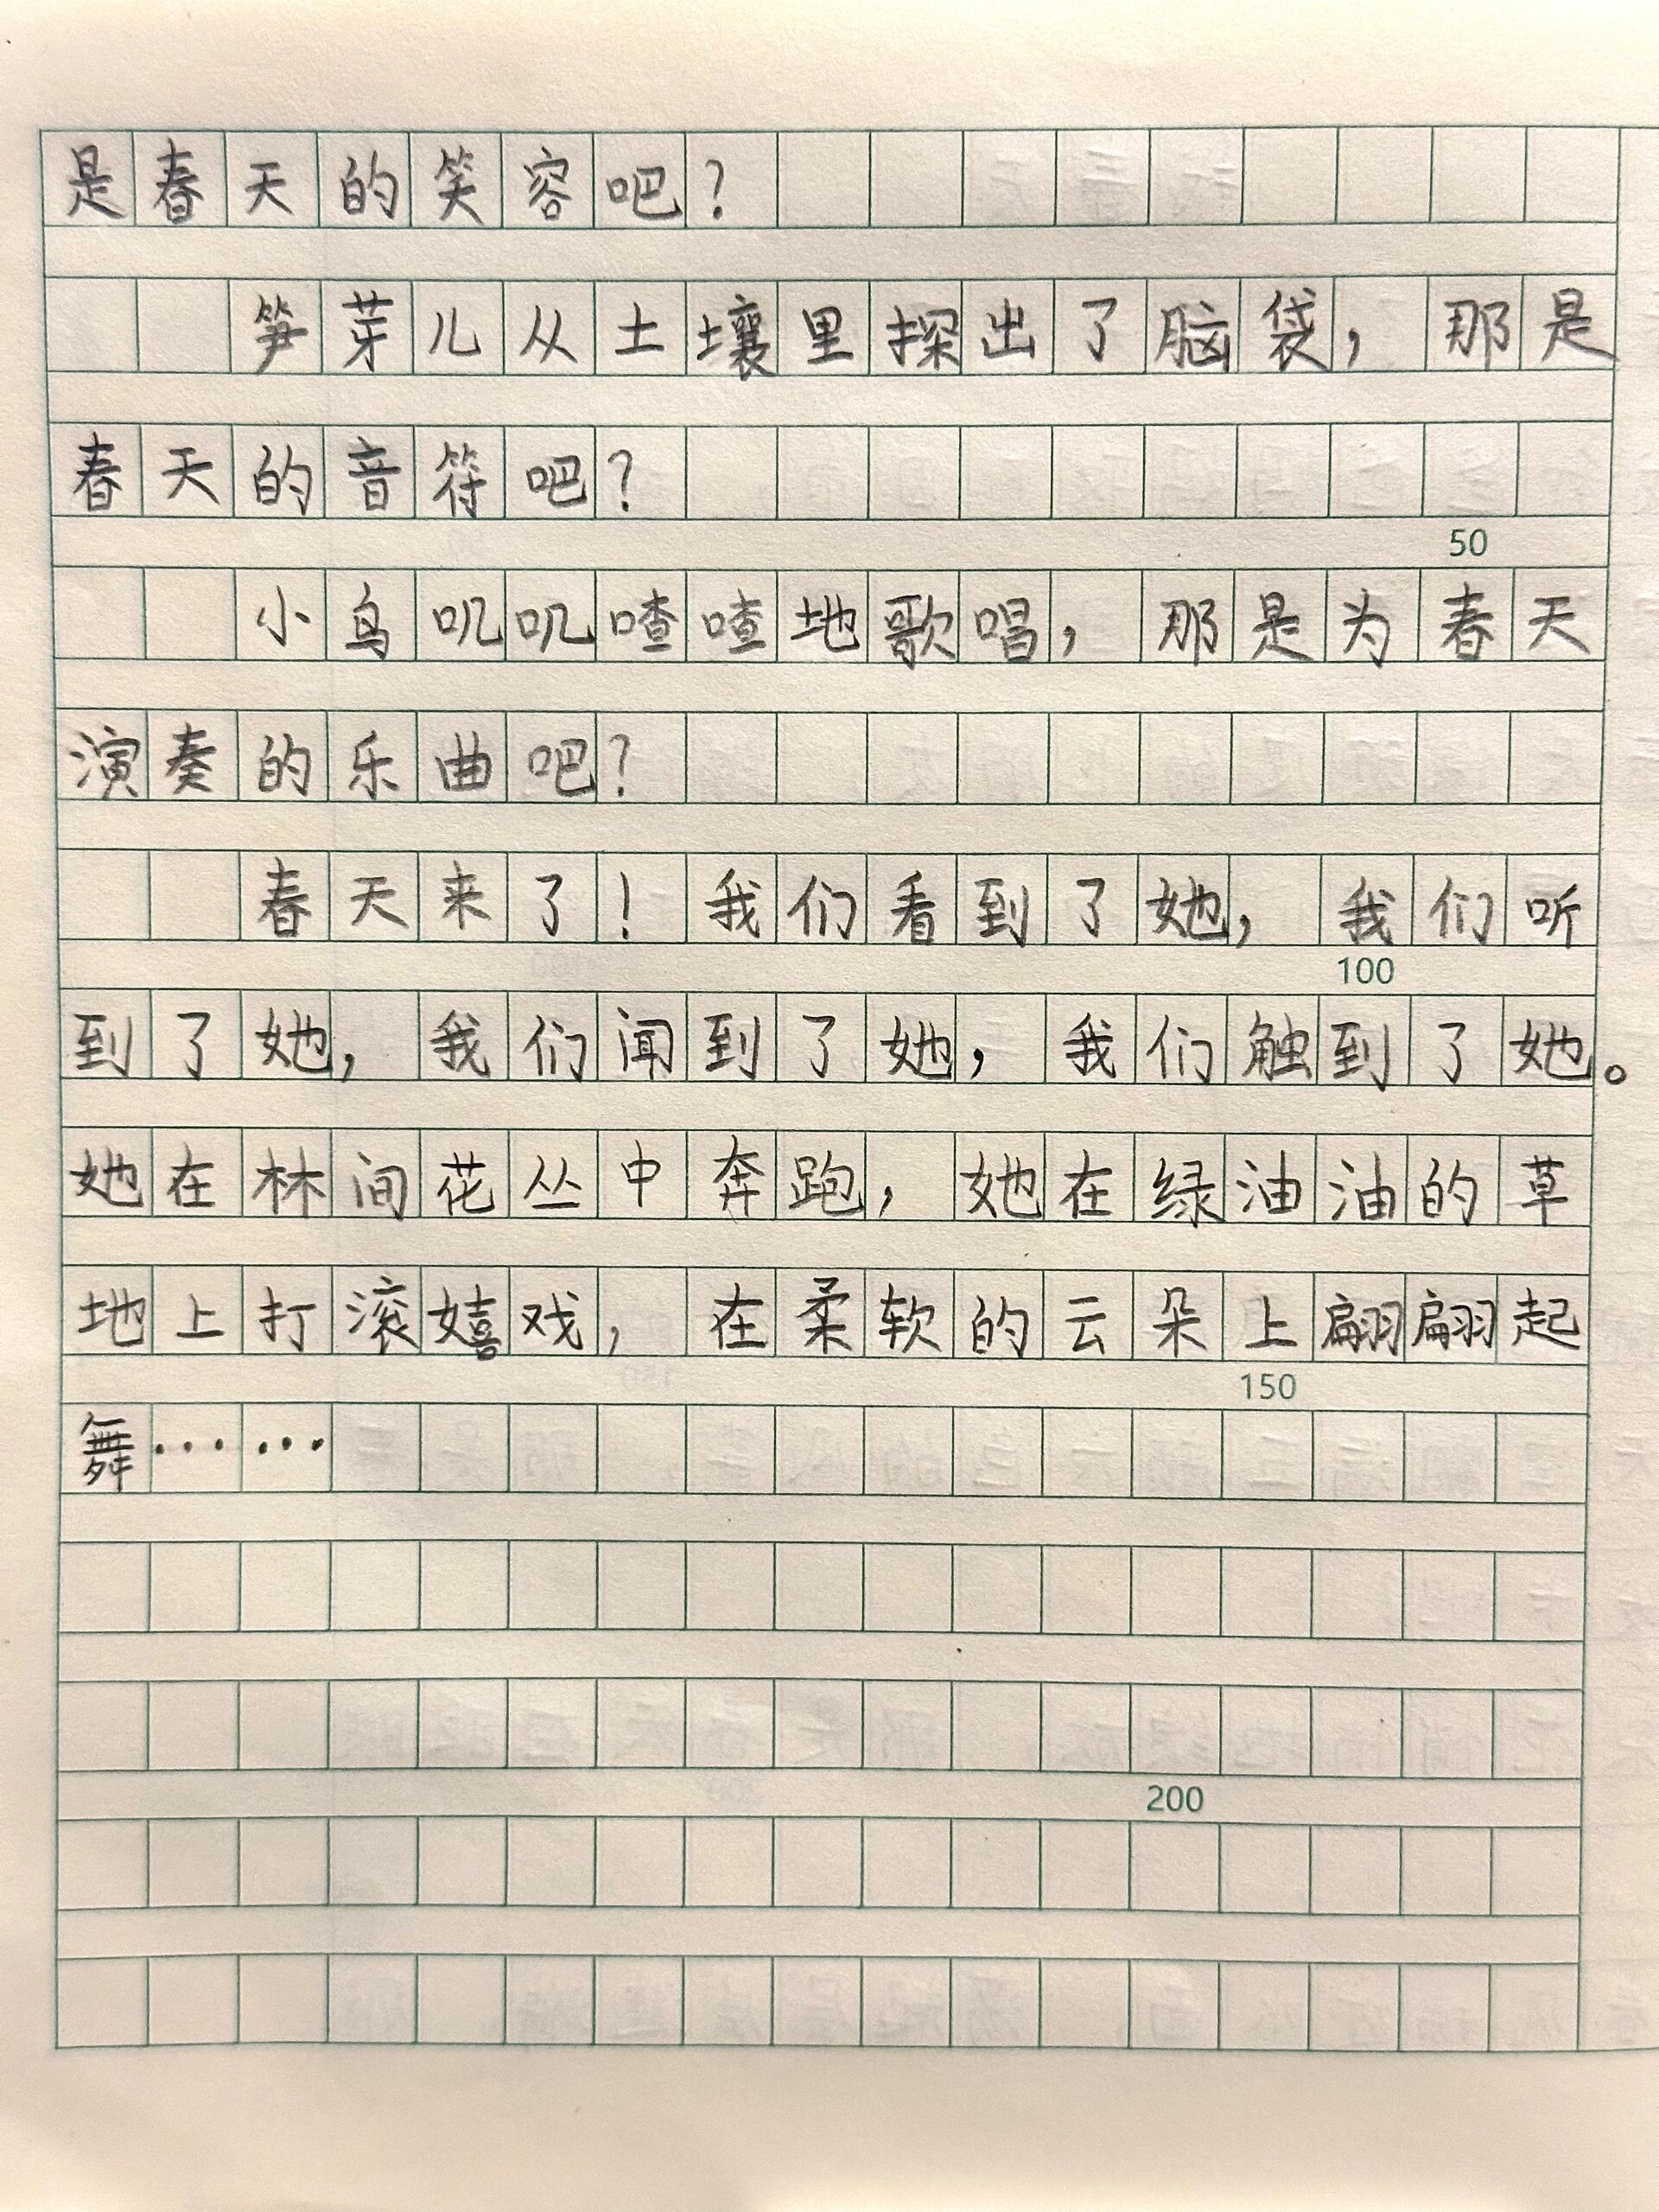 是春天的笑容吧？
笋芽儿从土壤里探出了脑袋，那是
春天的音符吧？
50
小鸟叽叽喳喳地歌唱，那是为春天
演奏的乐曲吧？
春天来了！我们看到了她，我们听
100
到了她，我们闻到了她，我们触到了她。
她在林间花丛中奔跑，她在绿油油的草
地上打滚嬉戏，在柔软的云朵上翩翩起
150
舞……
200